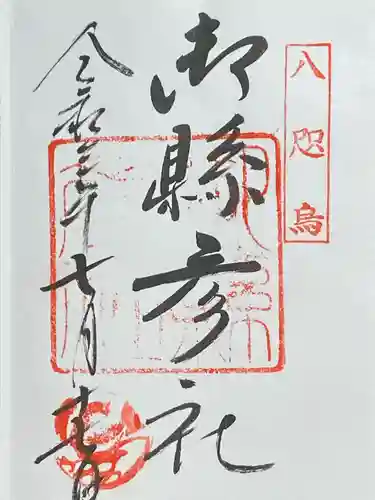 八咫烏
御縣彦社
令和三年七月十七日